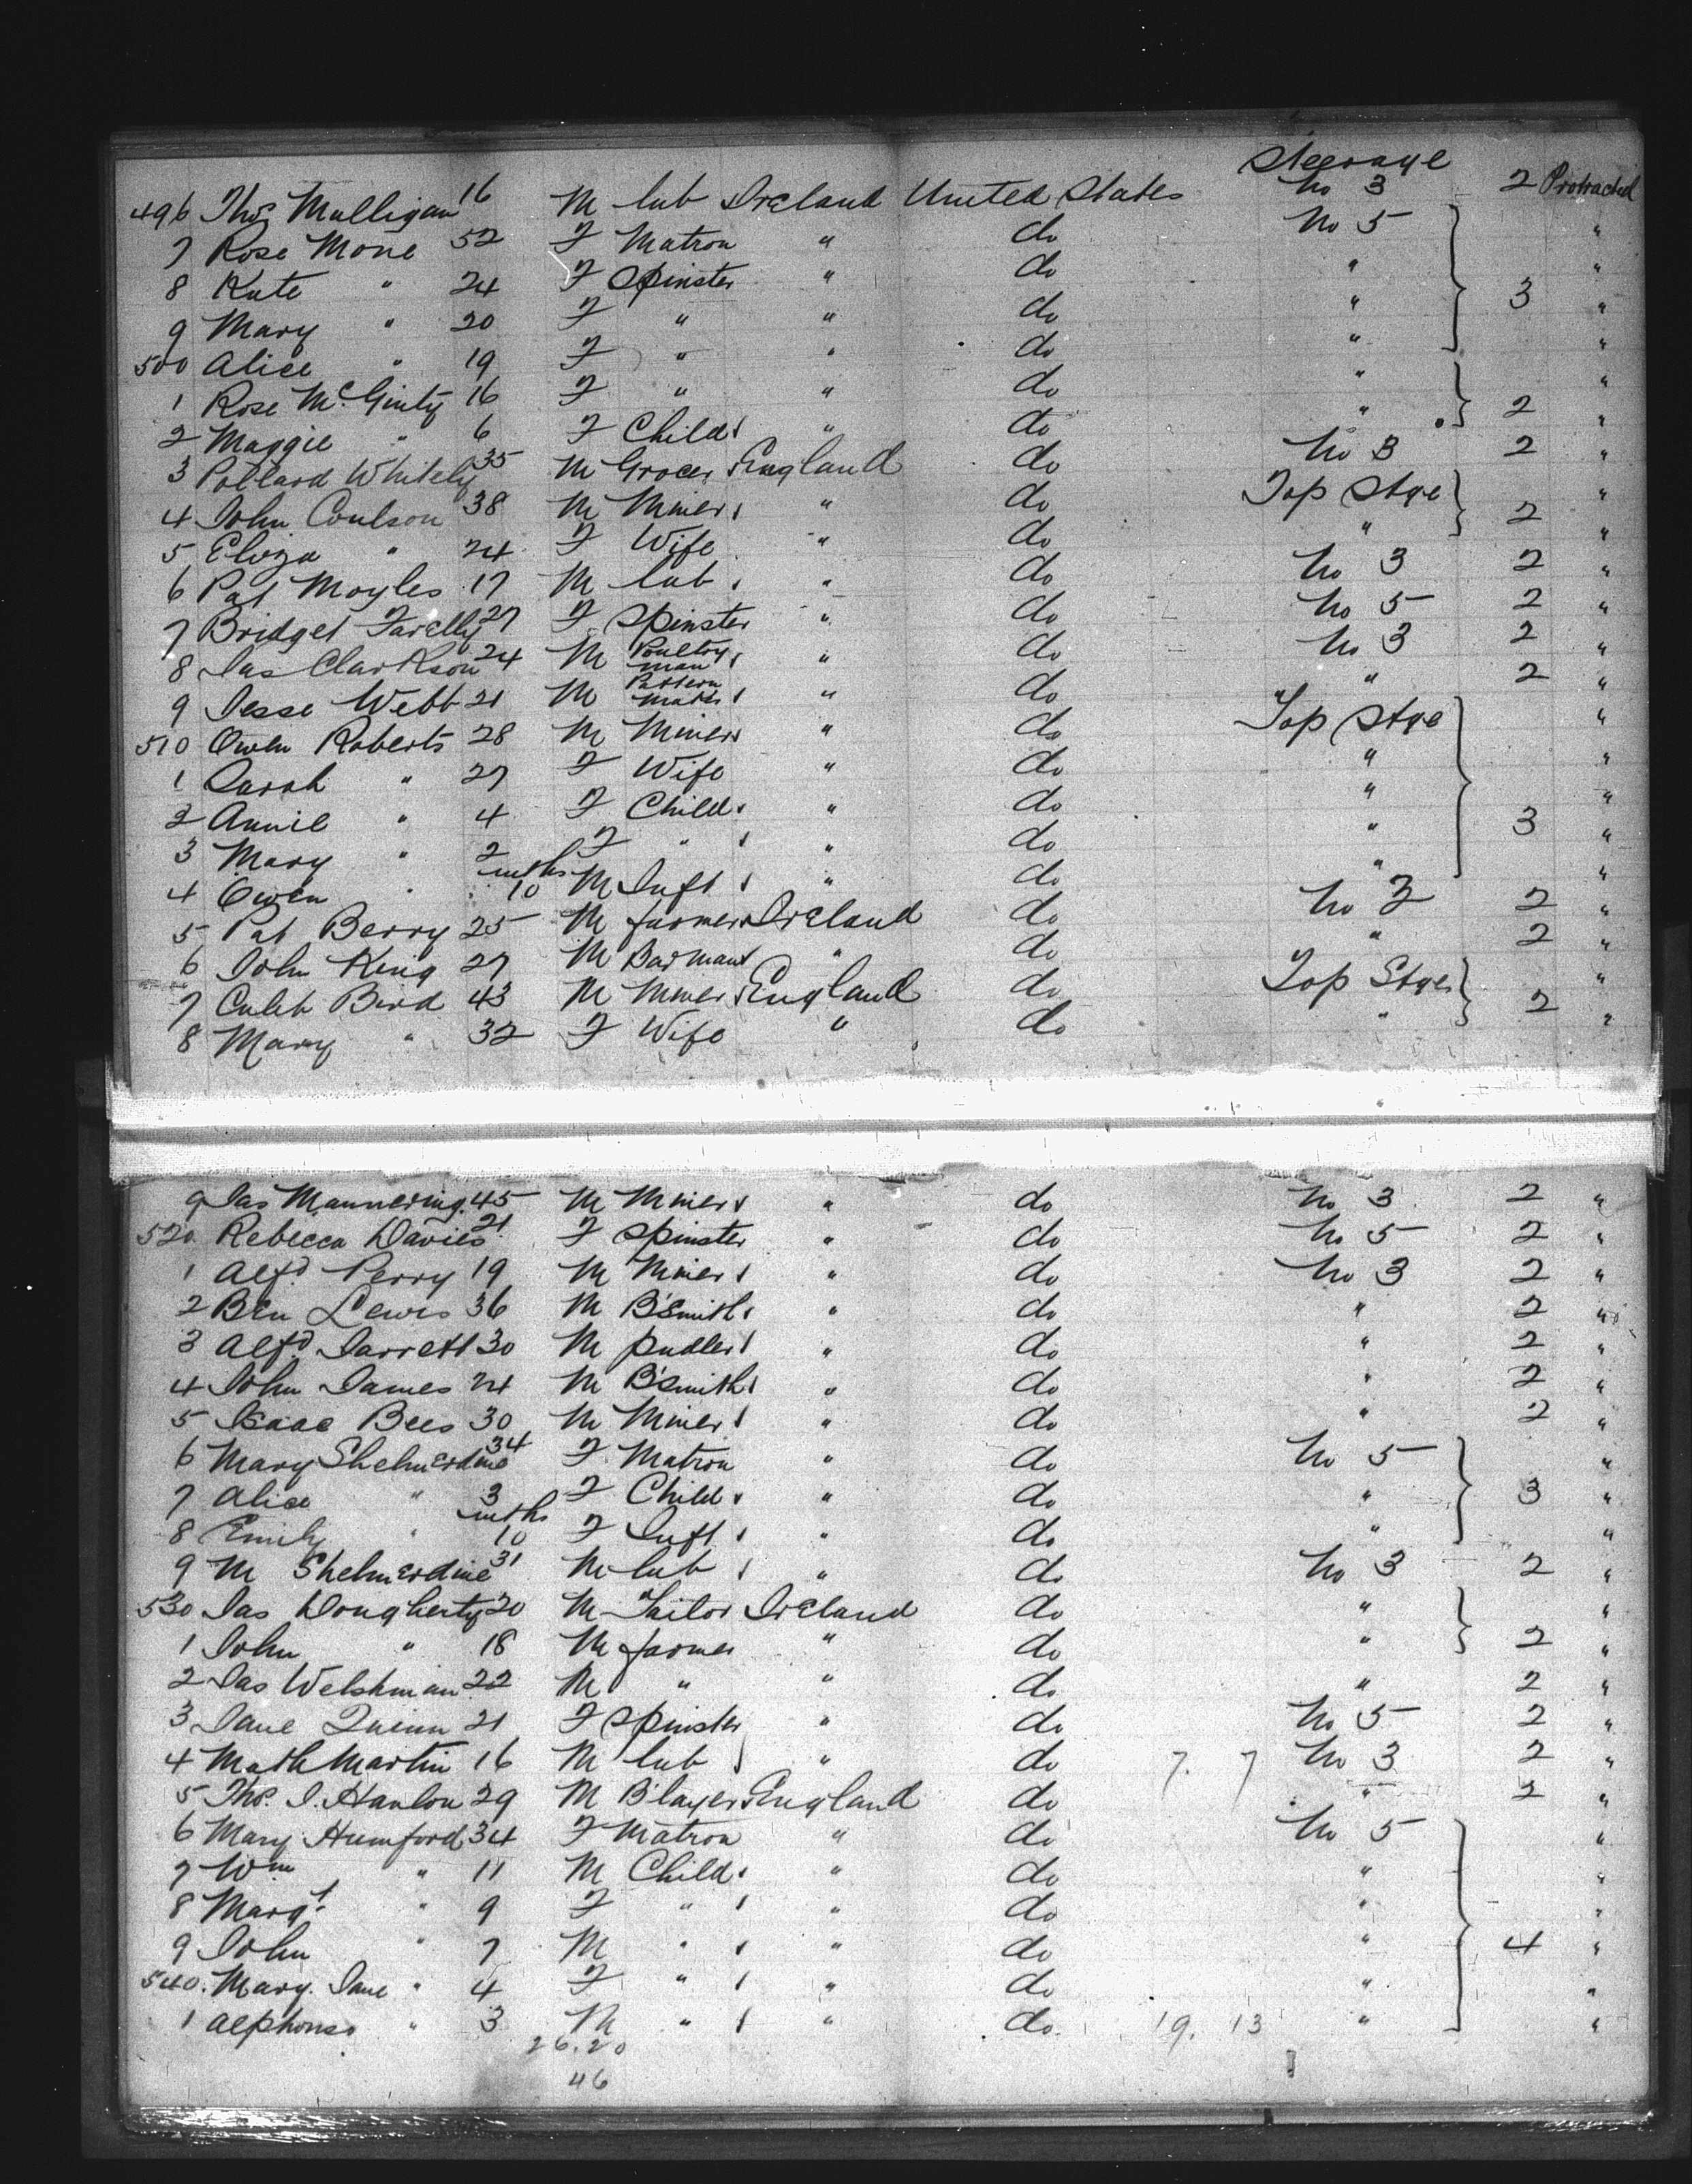 Steerage
496 Thos Mulligan 16 M lab Ireland United States No 3 2 Protracted
7 Rose Mone 52 F Matron " do No 5 "
8 Kate " 24 F Spinster " do " "
9 Mary " 20 F " " do " 3 "
500 Alice " 19 F " " do " "
1 Rose McGinty 16 F " " do " "
2 Maggie " 6 F Child " do " 2 "
3 Pollard Whitely 35 M Grocer England do No 3 2 "
4 John Coulson 38 M Miner " do Top Stge "
5 Eliza " 24 F Wife " do " 2 "
6 Pat Moyles 17 M lab " do No 3 2 "
7 Bridget Farelly 27 F Spinster " do No 5 2 "
8 Jas Clarkson 24 M Poultry man " do No 3 2 "
9 Jesse Webb 21 M Pattern maker " do " 2 "
510 Owen Roberts 28 M Miner " do Top Stge "
1 Sarah " 27 F Wife " do " "
2 Annie " 4 F Child " do " "
3 Mary " 2 F " " do " 3 "
4 Owen " mths 10 M Inft " do " "
5 Pat Berry 25 M farmer Ireland do No 3 2 "
6 John King 27 M Barman " do " 2 "
7 Caleb Bird 43 M Miner England do Top Stge "
8 Mary " 32 F Wife " do " 2 "
9 Jas Mannering 45 M Miner " do No 3 2 "
520 Rebecca Davies 21 F Spinster " do No 5 2 "
1 Alfd Perry 19 M Miner " do No 3 2 "
2 Ben Lewis 36 M B'Smith " do " 2 "
3 Alfd Jarrett 30 M pudler " do " 2 "
4 John James 24 M B'smith " do " 2 "
5 Isaac Bees 30 M Miner " do " 2 "
6 Mary Shelmerdine 34 F Matron " do No 5 "
7 Alice " 3 F Child " do " 3 "
8 Emily " mths 10 F Inft " do " "
9 M Shelmerdine 31 M lab " do No 3 2 "
530 Jas Dougherty 20 M Tailor Ireland do " "
1 John " 18 M farmer " do " 2 "
2 Jas Welshman 22 M " " do " 2 "
3 Jane Quinn 21 F Spinster " do No 5 2 "
4 Math Martin 16 M lab " do 7. 7 No 3 2 "
5 Thos. J. Hanlon 29 M B'layer England do " 2 "
6 Mary Humford 34 F Matron " do No 5 "
7 Wm " 11 M Child " do " "
8 Margt " 9 F " " do " "
9 John " 7 M " " do " 4 "
540 Mary Jane " 4 F " " do " "
1 Alphonso " 3 M " " do 19. 13 " "
26.20
46